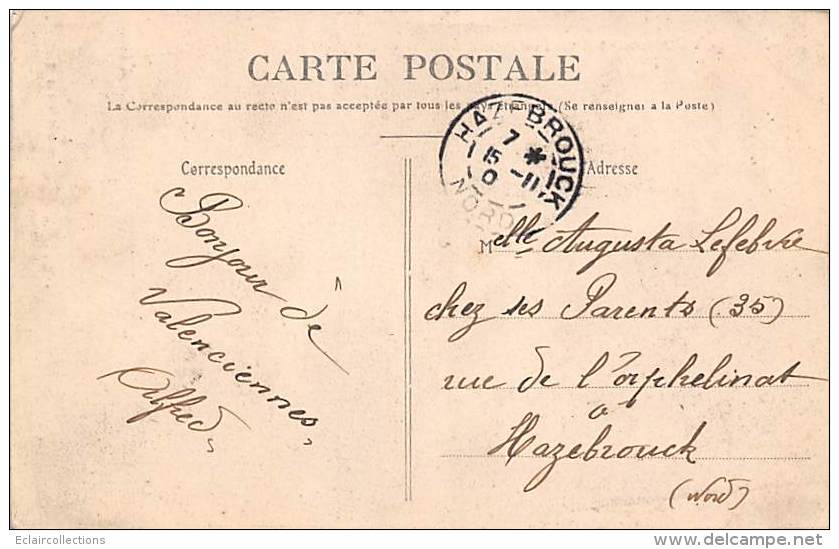 CARTE POSTALE
La Correspondance au recto n'est pas acceptée par tous les pays étrangers (Se renseigner a la Poste)
Correspondance
Adresse
HAZEBROUCK
7 *
15 -11
0
NORD
Bonjour de
Valenciennes
Alfred
Melle Augusta Lefebvre
chez ses Parents (35)
rue de l'orphelinat
à
Hazebrouck
(Nord)
Eclaircollections
www.delcampe.net